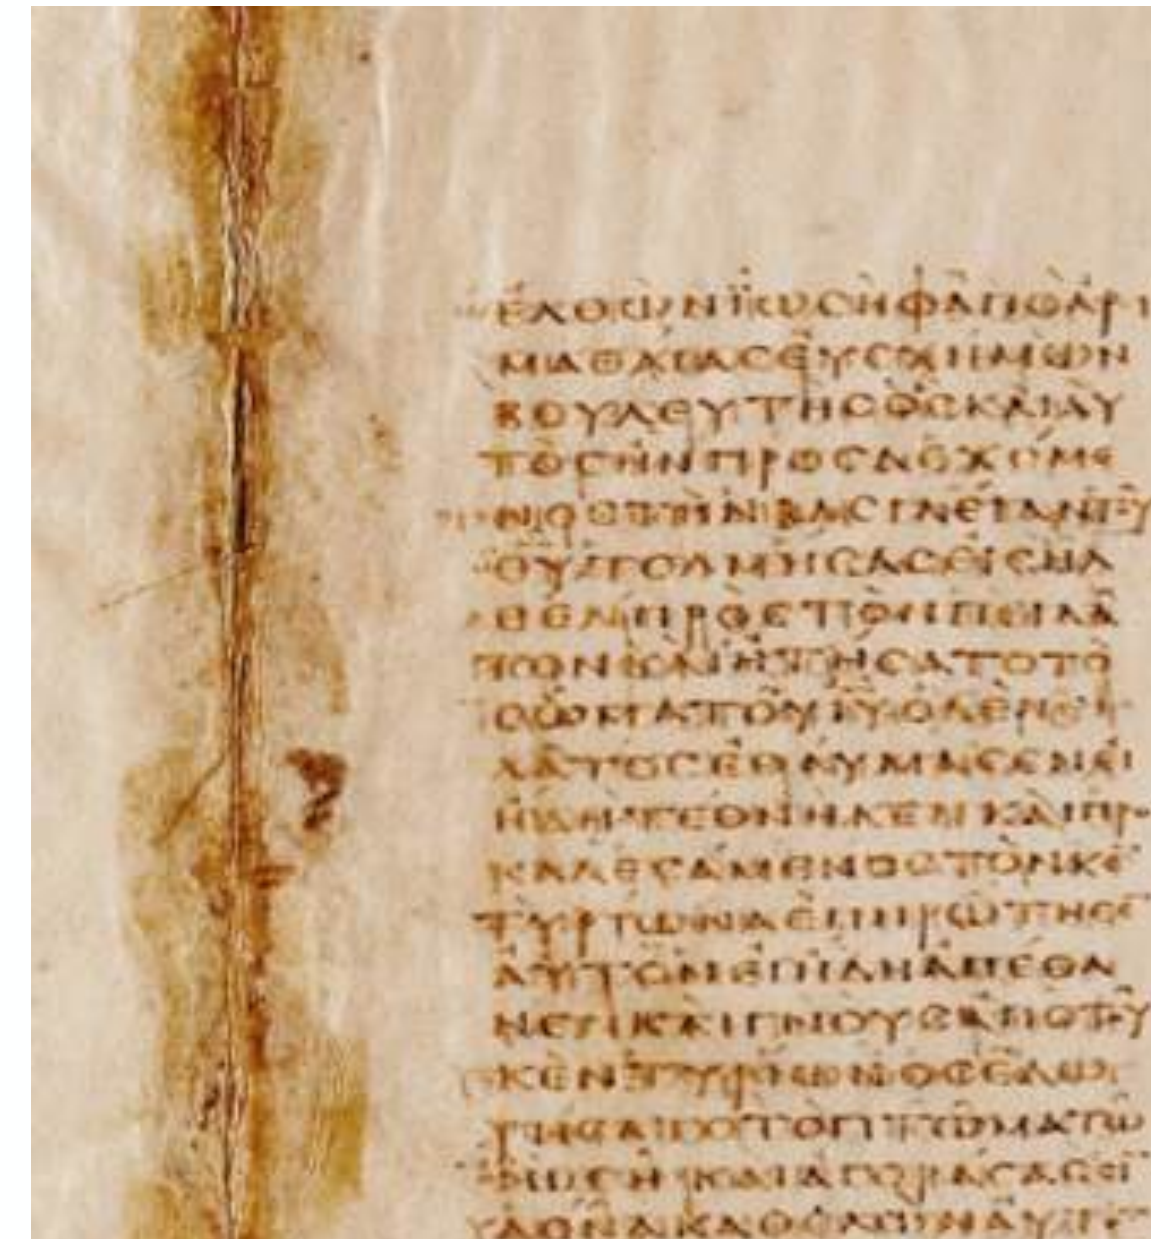 ΕΛΘΩΝ ΙΩΣΗΦ ΑΠΟ ΑΡΙ
ΜΑΘΑΙΑΣ ΕΥΣΧΗΜΩΝ
ΒΟΥΛΕΥΤΗΣ ΟΣ ΚΑΙ ΑΥ
ΤΟΣ ΗΝ ΠΡΟΣΔΕΧΟΜΕ
ΝΟΣ ΤΗΝ ΒΑΣΙΛΕΙΑΝ ΤΟΥ
ΘΥ ΤΟΛΜΗΣΑΣ ΕΙΣΗΛ
ΘΕΝ ΠΡΟΣ ΤΟΝ ΠΕΙΛΑ
ΤΟΝ ΚΑΙ ΗΤΗΣΑΤΟ ΤΟ
ΣΩΜΑ ΤΟΥ ΙΥ Ο ΔΕ ΠΕΙ
ΛΑΤΟΣ ΕΘΑΥΜΑΣΕΝ ΕΙ
ΗΔΗ ΤΕΘΝΗΚΕΝ ΚΑΙ ΠΡΟΣ
ΚΑΛΕΣΑΜΕΝΟΣ ΤΟΝ ΚΕ
ΤΥΡΙΩΝΑ ΕΠΗΡΩΤΗΣΕ
ΑΥΤΟΝ ΕΙ ΗΔΗ ΑΠΕΘΑ
ΝΕΝ ΚΑΙ ΓΝΟΥΣ ΑΠΟ ΤΟΥ
ΚΕΝΤΥΡΙΩΝΟΣ ΕΔΩ
ΡΗΣΑΤΟ ΤΟ ΠΤΩΜΑ ΤΩ
ΙΩΣΗΦ ΚΑΙ ΑΓΟΡΑΣΑΣ ΣΙ
ΔΟΝΑ ΚΑΘΕΛΩΝ ΑΥΤΟ